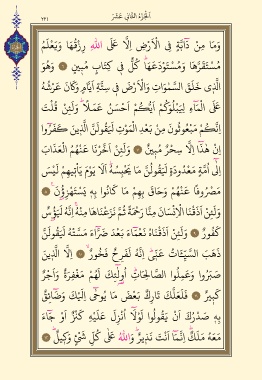 الجزء الثاني عشر
٢٢١
وَمَا مِنْ دَٓابَّةٍ فِي الْاَرْضِ اِلَّا عَلَى اللّٰهِ رِزْقُهَا وَيَعْلَمُ
مُسْتَقَرَّهَا وَمُسْتَوْدَعَهَا كُلٌّ فِي كِتَابٍ مُبِينٍ وَهُوَ
الَّذِي خَلَقَ السَّمٰوَاتِ وَالْاَرْضَ فِي سِتَّةِ اَيَّامٍ وَكَانَ عَرْشُهُ
عَلَى الْمَٓاءِ لِيَبْلُوَكُمْ اَيُّكُمْ اَحْسَنُ عَمَلًا وَلَئِنْ قُلْتَ
اِنَّكُمْ مَبْعُوثُونَ مِنْ بَعْدِ الْمَوْتِ لَيَقُولَنَّ الَّذِينَ كَفَرُٓوا
اِنْ هٰذَٓا اِلَّا سِحْرٌ مُبِينٌ وَلَئِنْ اَخَّرْنَا عَنْهُمُ الْعَذَابَ
اِلٰٓى اُمَّةٍ مَعْدُودَةٍ لَيَقُولُنَّ مَا يَحْبِسُهُ اَلَا يَوْمَ يَأْتِيهِمْ لَيْسَ
مَصْرُوفًا عَنْهُمْ وَحَاقَ بِهِمْ مَا كَانُوا بِهِ يَسْتَهْزِؤُ۫نَ
وَلَئِنْ اَذَقْنَا الْاِنْسَانَ مِنَّا رَحْمَةً ثُمَّ نَزَعْنَاهَا مِنْهُ اِنَّهُ لَيَؤُ۫سٌ
كَفُورٌ وَلَئِنْ اَذَقْنَاهُ نَعْمَٓاءَ بَعْدَ ضَرَّٓاءَ مَسَّتْهُ لَيَقُولَنَّ
ذَهَبَ السَّيِّـَٔاتُ عَنِّي اِنَّهُ لَفَرِحٌ فَخُورٌ اِلَّا الَّذِينَ
صَبَرُوا وَعَمِلُوا الصَّالِحَاتِ اُو۬لٰٓئِكَ لَهُمْ مَغْفِرَةٌ وَاَجْرٌ
كَبِيرٌ فَلَعَلَّكَ تَارِكٌ بَعْضَ مَا يُوحٰٓى اِلَيْكَ وَضَٓائِقٌ
بِهِ صَدْرُكَ اَنْ يَقُولُوا لَوْلَٓا اُنْزِلَ عَلَيْهِ كَنْزٌ اَوْ جَٓاءَ
مَعَهُ مَلَكٌ اِنَّمَٓا اَنْتَ نَذِيرٌ وَاللّٰهُ عَلٰى كُلِّ شَيْءٍ وَكِيلٌ